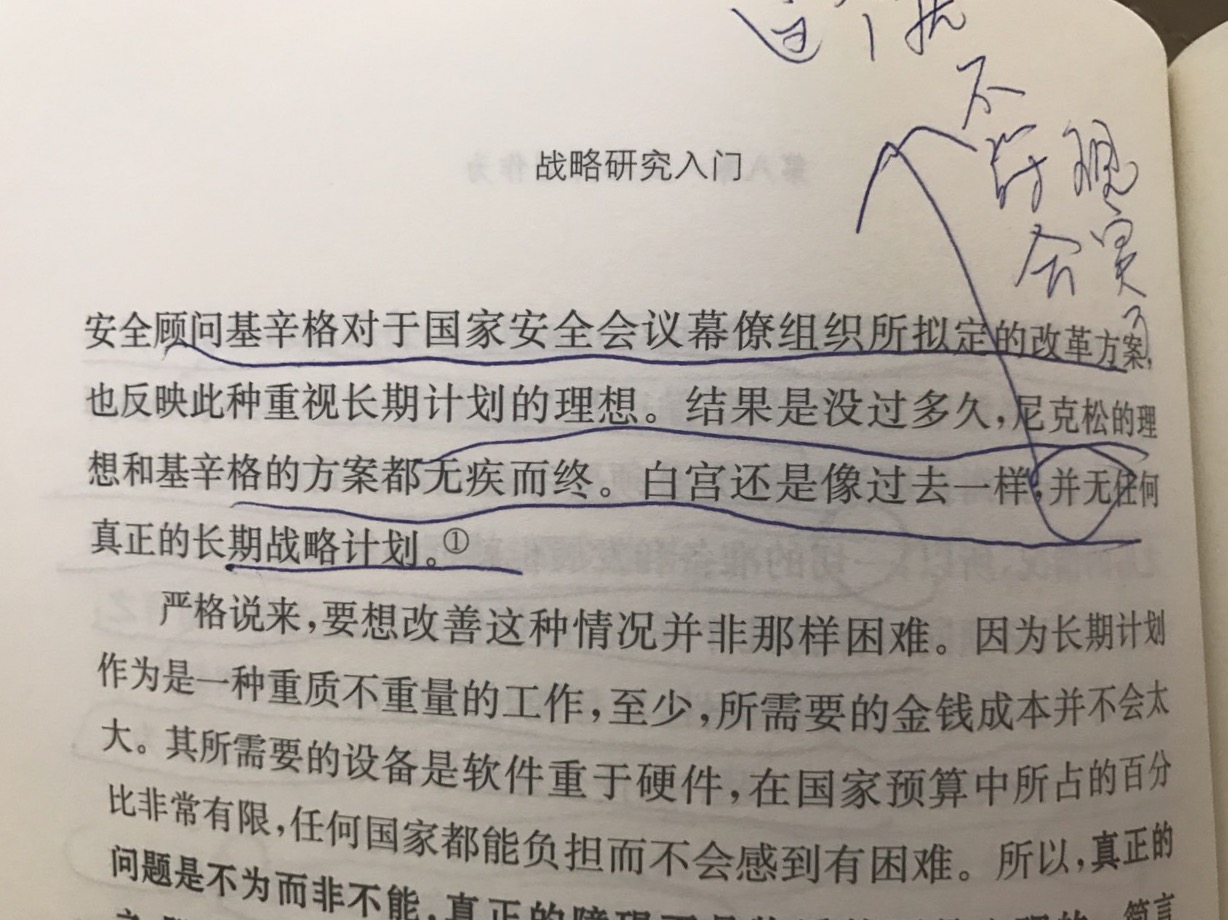 不
符 现
合 实
战略研究入门
安全顾问基辛格对于国家安全会议幕僚组织所拟定的改革方案,
也反映此种重视长期计划的理想。结果是没过多久,尼克松的理
想和基辛格的方案都无疾而终。白宫还是像过去一样,并无任何
真正的长期战略计划。①
严格说来,要想改善这种情况并非那样困难。因为长期计划
作为是一种重质不重量的工作,至少,所需要的金钱成本并不会太
大。其所需要的设备是软件重于硬件,在国家预算中所占的百分
比非常有限,任何国家都能负担而不会感到有困难。所以,真正的
问题是不为而非不能,真正的障碍